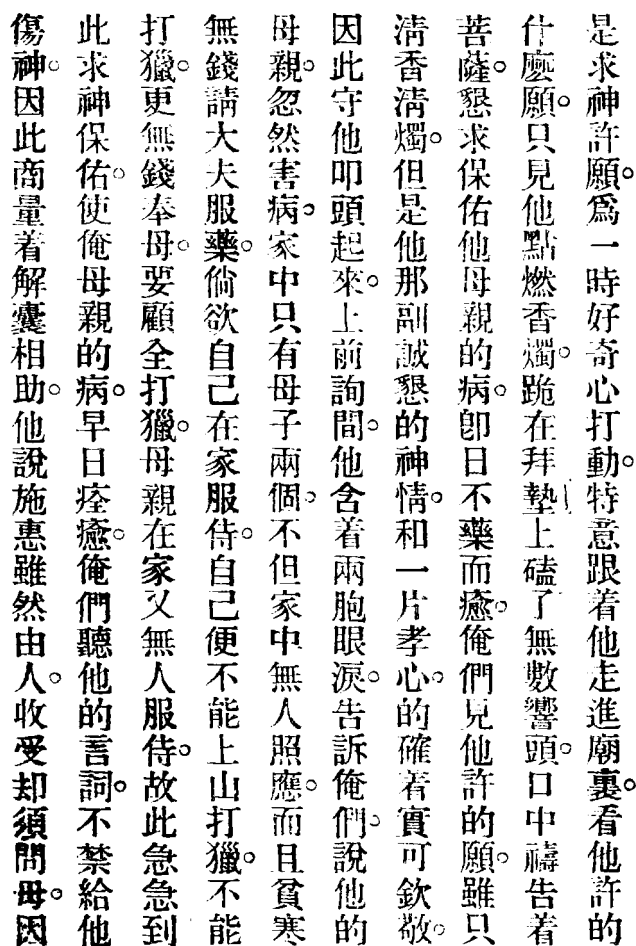 是求神許願。爲一時好奇心打動。特意跟着他走進廟裏。看他許的
什麽願。只見他點燃香燭。跪在拜墊上磕了無數響頭。口中禱告着
菩薩。懇求保佑他母親的病。卽日不藥而癒。俺們見他許的願。雖只
淸香淸燭。但是他那副誠懇的神情。和一片孝心。的確着實可欽敬。
因此守他叩頭起來。上前詢問。他含着兩胞眼淚。告訴俺們。說他的
母親。忽然害病。家中只有母子兩個。不但家中無人照應。而且貧寒
無錢請大夫服藥。倘欲自己在家服侍。自己便不能上山打獵。不能
打獵。更無錢奉母。要顧全打獵。母親在家又無人服侍。故此急急到
此求神保佑。使俺母親的病。早日痊癒。俺們聽他的言詞。不禁給他
傷神。因此商量着解囊相助。他說施惠雖然由人。收受却須問母。因